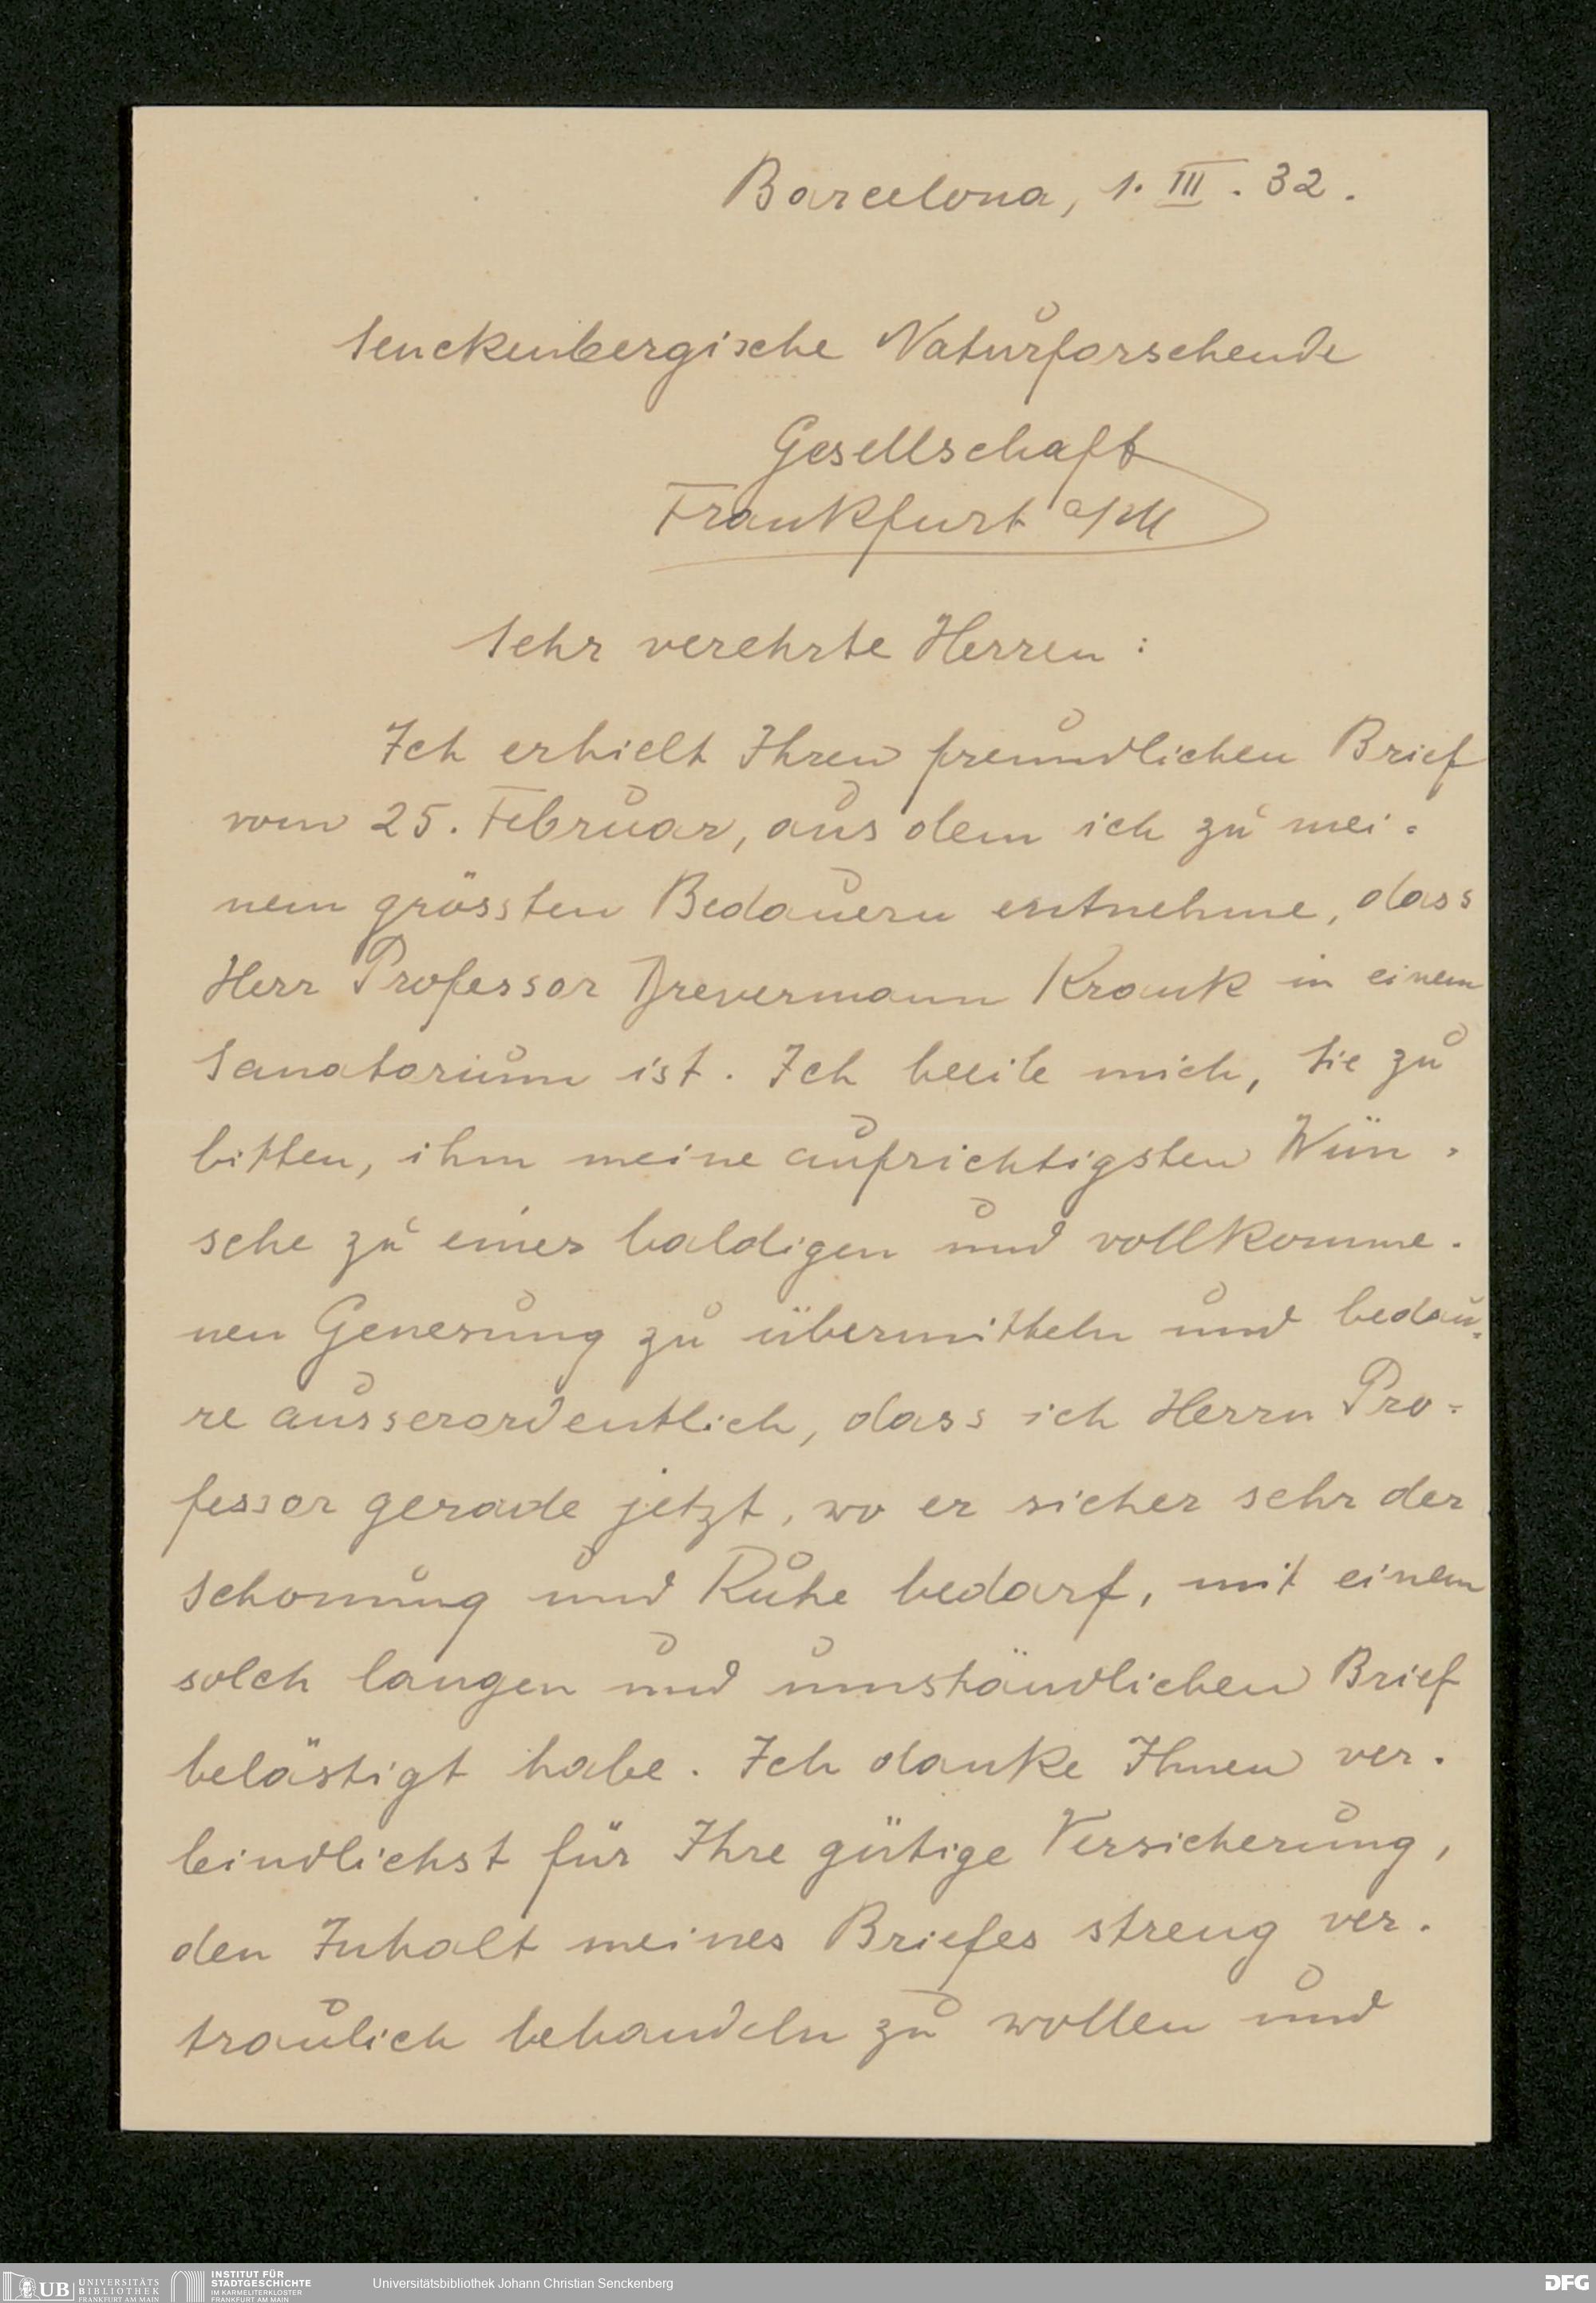 Barcelona, 1. III. 32.
Senckenbergische Naturforschende
Gesellschaft
Frankfurt a/M
Sehr verehrte Herren:
Ich erhielt Ihren freundlichen Brief
vom 25. Februar, aus dem ich zu mei-
nem grössten Bedauern entnehme, dass
Herr Professor Drevermann krank in einem
Sanatorium ist. Ich beeile mich, Sie zu
bitten, ihm meine aufrichtigsten Wün-
sche zu einer baldigen und vollkomme-
nen Genesung zu übermitteln und bedau-
re ausserordentlich, dass ich Herrn Pro-
fessor gerade jetzt, wo er sicher sehr der
Schonung und Ruhe bedarf, mit einem
solch langen und umständlichen Brief
belästigt habe. Ich danke Ihnen ver-
bindlichst für Ihre gütige Versicherung,
den Inhalt meines Briefes streng ver-
traulich behandeln zu wollen und
UB UNIVERSITÄTS
BIBLIOTHEK
FRANKFURT AM MAIN
INSTITUT FÜR
STADTGESCHICHTE
IM KARMELITERKLOSTER
FRANKFURT AM MAIN
Universitätsbibliothek Johann Christian Senckenberg
DFG